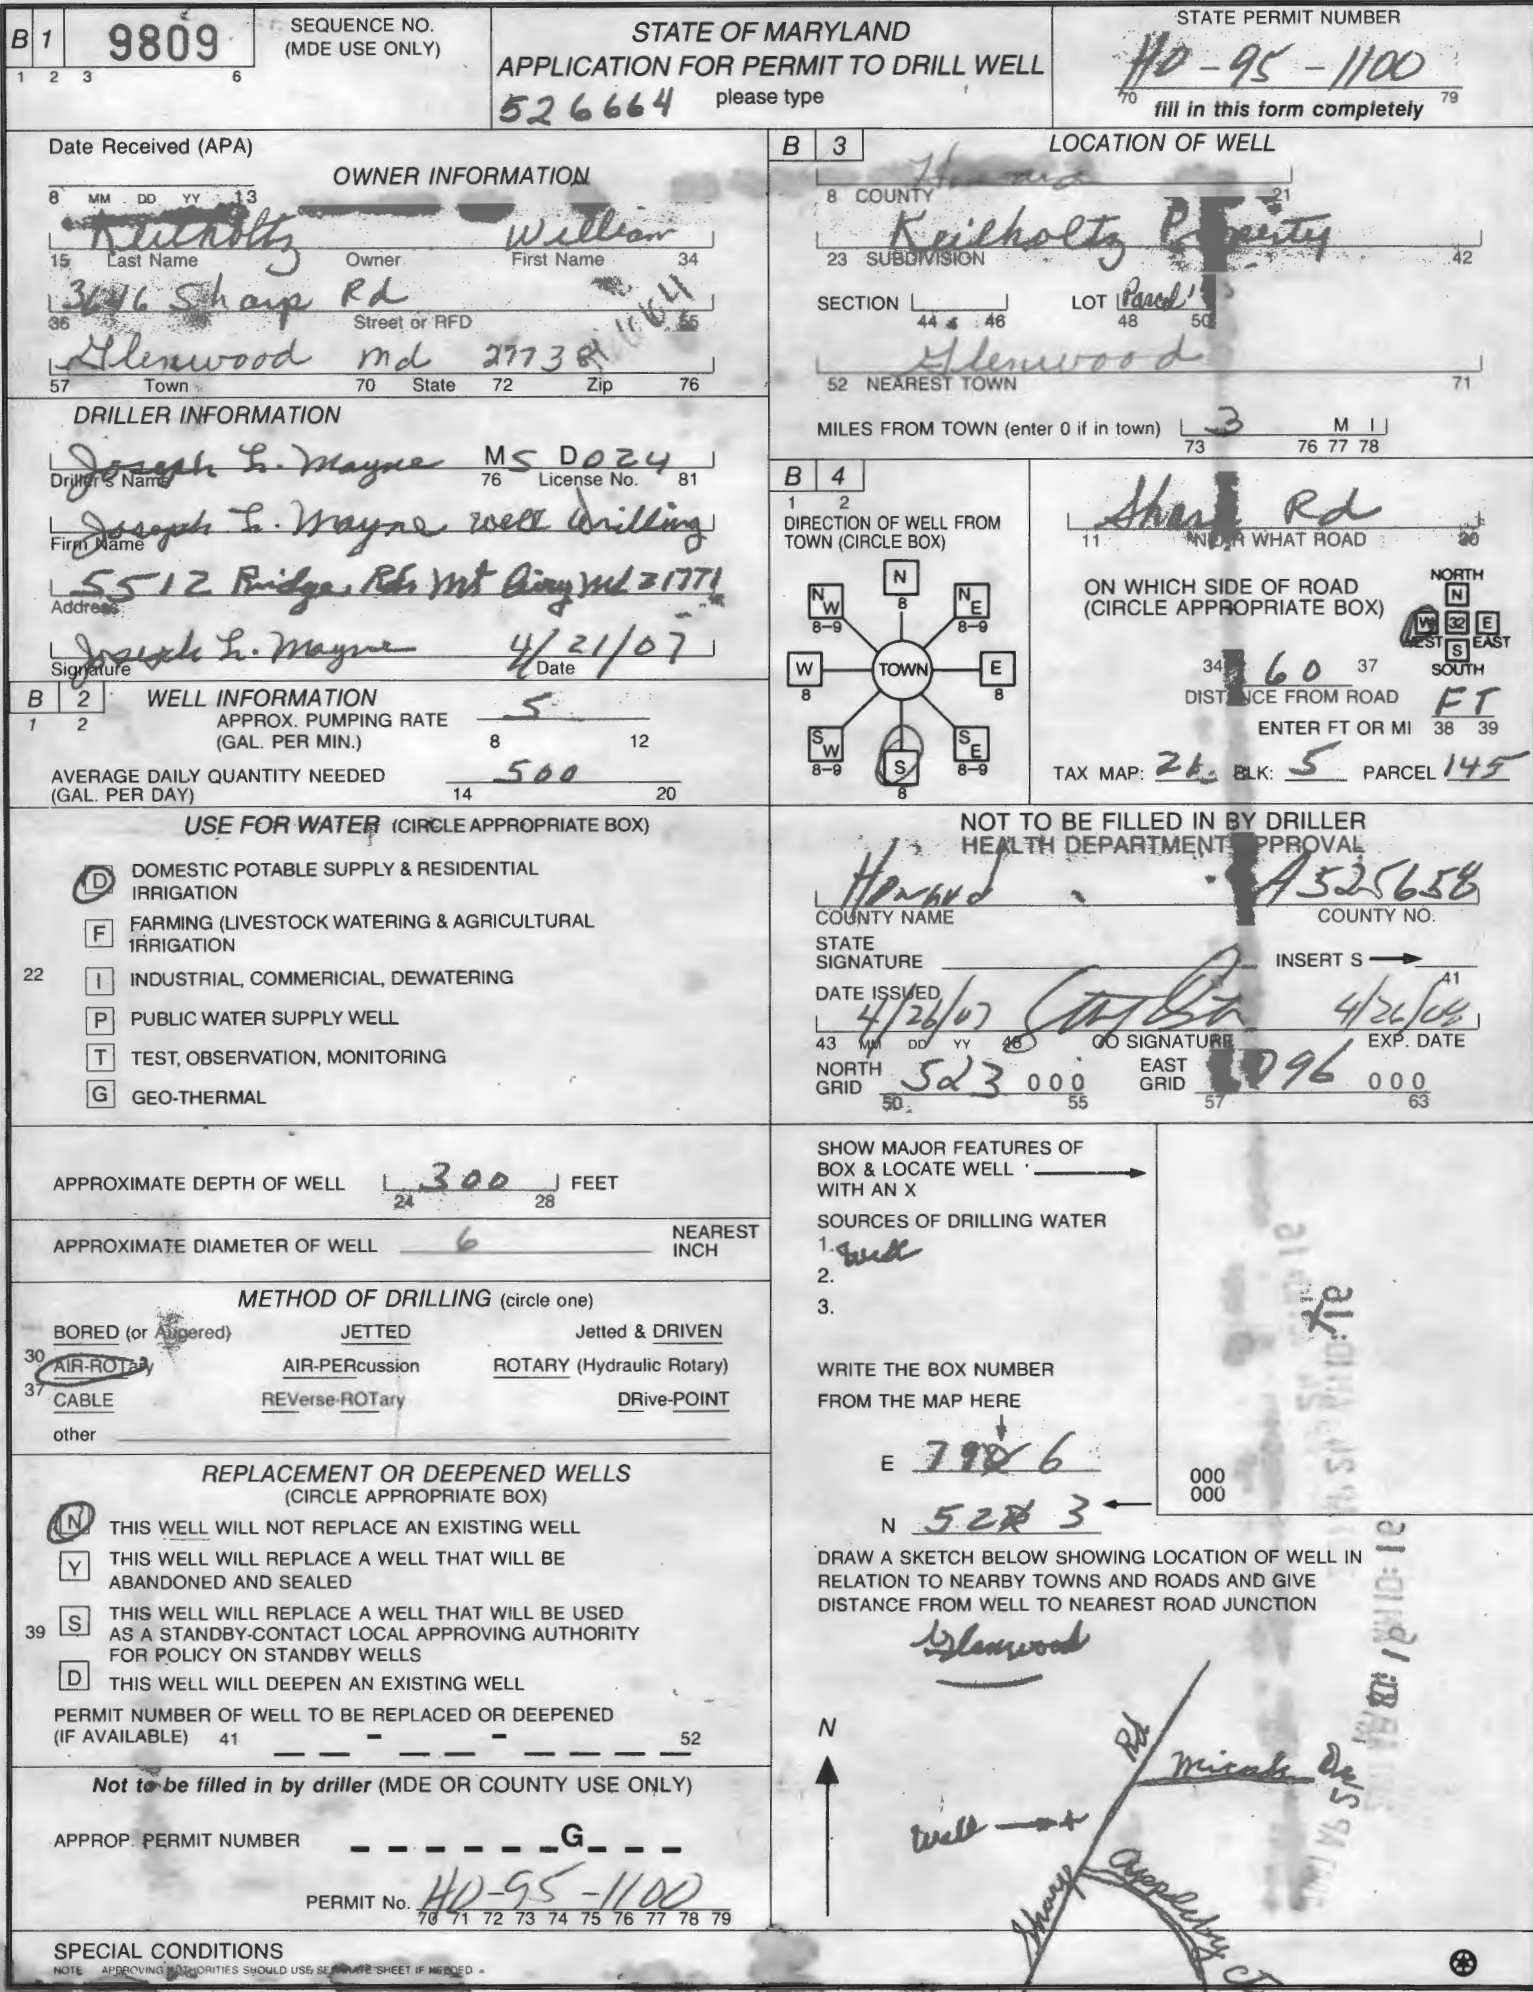 B 1 9809 SEQUENCE NO. (MDE USE ONLY)
1 2 3 6
STATE OF MARYLAND
APPLICATION FOR PERMIT TO DRILL WELL
526664 please type
STATE PERMIT NUMBER
HO-95-1100
70 79
fill in this form completely
Date Received (APA)
OWNER INFORMATION
8 MM DD YY 13
Keilholtz William
15 Last Name Owner First Name 34
3646 Sharp Rd
36 Street or RFD 55
Glenwood Md 27738
57 Town 70 State 72 Zip 76
DRILLER INFORMATION
Joseph L. Mayne MS D024
Driller's Name 76 License No. 81
Joseph L. Mayne Well Drilling
Firm Name
5512 Ridge Rd Mt Airy Md 21771
Address
Joseph L. Mayne 4/21/07
Signature Date
B 2 WELL INFORMATION
1 2 APPROX. PUMPING RATE 5
(GAL. PER MIN.) 8 12
AVERAGE DAILY QUANTITY NEEDED 500
(GAL. PER DAY) 14 20
USE FOR WATER (CIRCLE APPROPRIATE BOX)
D DOMESTIC POTABLE SUPPLY & RESIDENTIAL
IRRIGATION
F FARMING (LIVESTOCK WATERING & AGRICULTURAL
IRRIGATION
22 I INDUSTRIAL, COMMERICIAL, DEWATERING
P PUBLIC WATER SUPPLY WELL
T TEST, OBSERVATION, MONITORING
G GEO-THERMAL
APPROXIMATE DEPTH OF WELL 300 FEET
24 28
APPROXIMATE DIAMETER OF WELL 6 NEAREST INCH
METHOD OF DRILLING (circle one)
BORED (or Augered) JETTED Jetted & DRIVEN
30 AIR-ROTary AIR-PERcussion ROTARY (Hydraulic Rotary)
37 CABLE REVerse-ROTary DRive-POINT
other
REPLACEMENT OR DEEPENED WELLS
(CIRCLE APPROPRIATE BOX)
N THIS WELL WILL NOT REPLACE AN EXISTING WELL
Y THIS WELL WILL REPLACE A WELL THAT WILL BE
ABANDONED AND SEALED
39 S THIS WELL WILL REPLACE A WELL THAT WILL BE USED
AS A STANDBY-CONTACT LOCAL APPROVING AUTHORITY
FOR POLICY ON STANDBY WELLS
D THIS WELL WILL DEEPEN AN EXISTING WELL
PERMIT NUMBER OF WELL TO BE REPLACED OR DEEPENED
(IF AVAILABLE) 41 52
Not to be filled in by driller (MDE OR COUNTY USE ONLY)
APPROP. PERMIT NUMBER G
PERMIT No. HO-95-1100
70 71 72 73 74 75 76 77 78 79
SPECIAL CONDITIONS
NOTE APPROVING AUTHORITIES SHOULD USE SEPARATE SHEET IF NEEDED
B 3 LOCATION OF WELL
Howard
8 COUNTY 21
Keilholtz Property
23 SUBDIVISION 42
SECTION LOT Parcel 1
44 46 48 50
Glenwood
52 NEAREST TOWN 71
MILES FROM TOWN (enter 0 if in town) 3 M I
73 76 77 78
B 4
1 2
DIRECTION OF WELL FROM
TOWN (CIRCLE BOX)
N 8
NW 8-9 NE 8-9
W 8 TOWN E 8
SW 8-9 S 8 SE 8-9
Sharp Rd
11 NEAR WHAT ROAD 30
ON WHICH SIDE OF ROAD
(CIRCLE APPROPRIATE BOX)
NORTH
N
W 32 E
WEST EAST
S
SOUTH
34 60 37
DISTANCE FROM ROAD
ENTER FT OR MI FT
38 39
TAX MAP: 21 BLK: 5 PARCEL 145
NOT TO BE FILLED IN BY DRILLER
HEALTH DEPARTMENT APPROVAL
Howard A525658
COUNTY NAME COUNTY NO.
STATE
SIGNATURE INSERT S
41
DATE ISSUED
4/26/07 4/26/08
43 MM DD YY 48 CO SIGNATURE EXP. DATE
NORTH GRID 523 000 EAST GRID 796 000
50 55 57 63
SHOW MAJOR FEATURES OF
BOX & LOCATE WELL
WITH AN X
SOURCES OF DRILLING WATER
1. well
2.
3.
X
WRITE THE BOX NUMBER
FROM THE MAP HERE
E 798 6
N 528 3
000
000
DRAW A SKETCH BELOW SHOWING LOCATION OF WELL IN
RELATION TO NEARBY TOWNS AND ROADS AND GIVE
DISTANCE FROM WELL TO NEAREST ROAD JUNCTION
Glenwood
N
Rd
Micah Dr
Well
Sharp
Appleby Ct